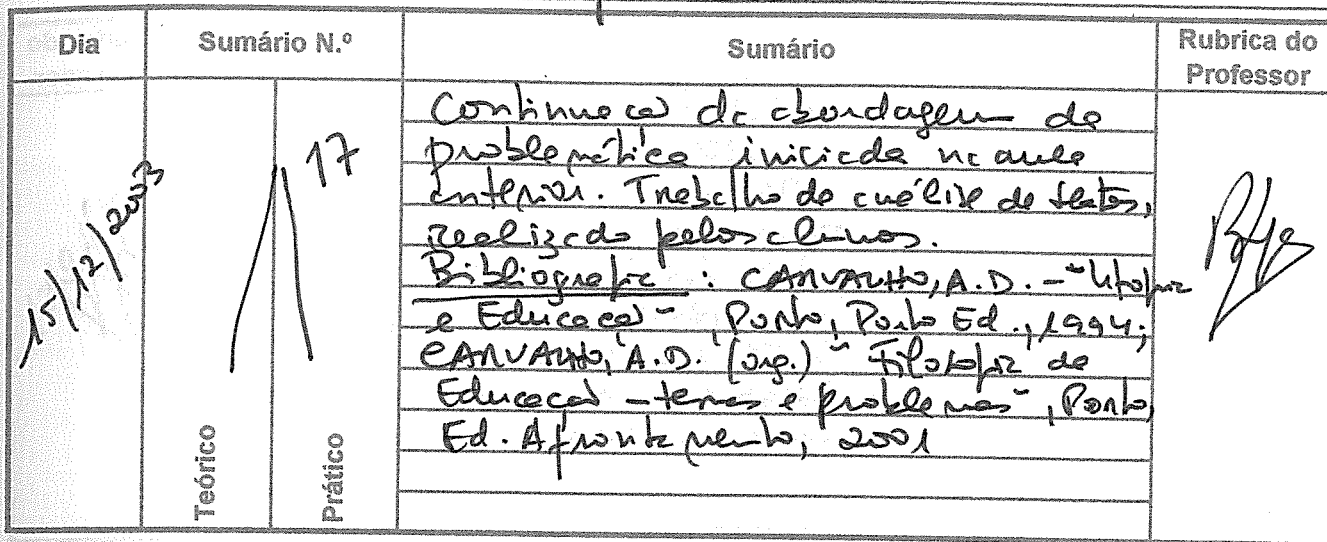 Dia
Sumário N.º
Sumário
Rubrica do
Professor
15/12/2003
17
Teórico
Prático
Continuação da abordagem da
problemática iniciada na aula
anterior. Trabalho de análise de textos,
realizado pelos alunos.
Bibliografia : CARVALHO, A.D. - "Utopia
e Educação", Porto, Porto Ed., 1994;
CARVALHO, A.D. (org.) "Filosofia da
Educação - temas e problemas", Porto,
Ed. Afrontamento, 2001